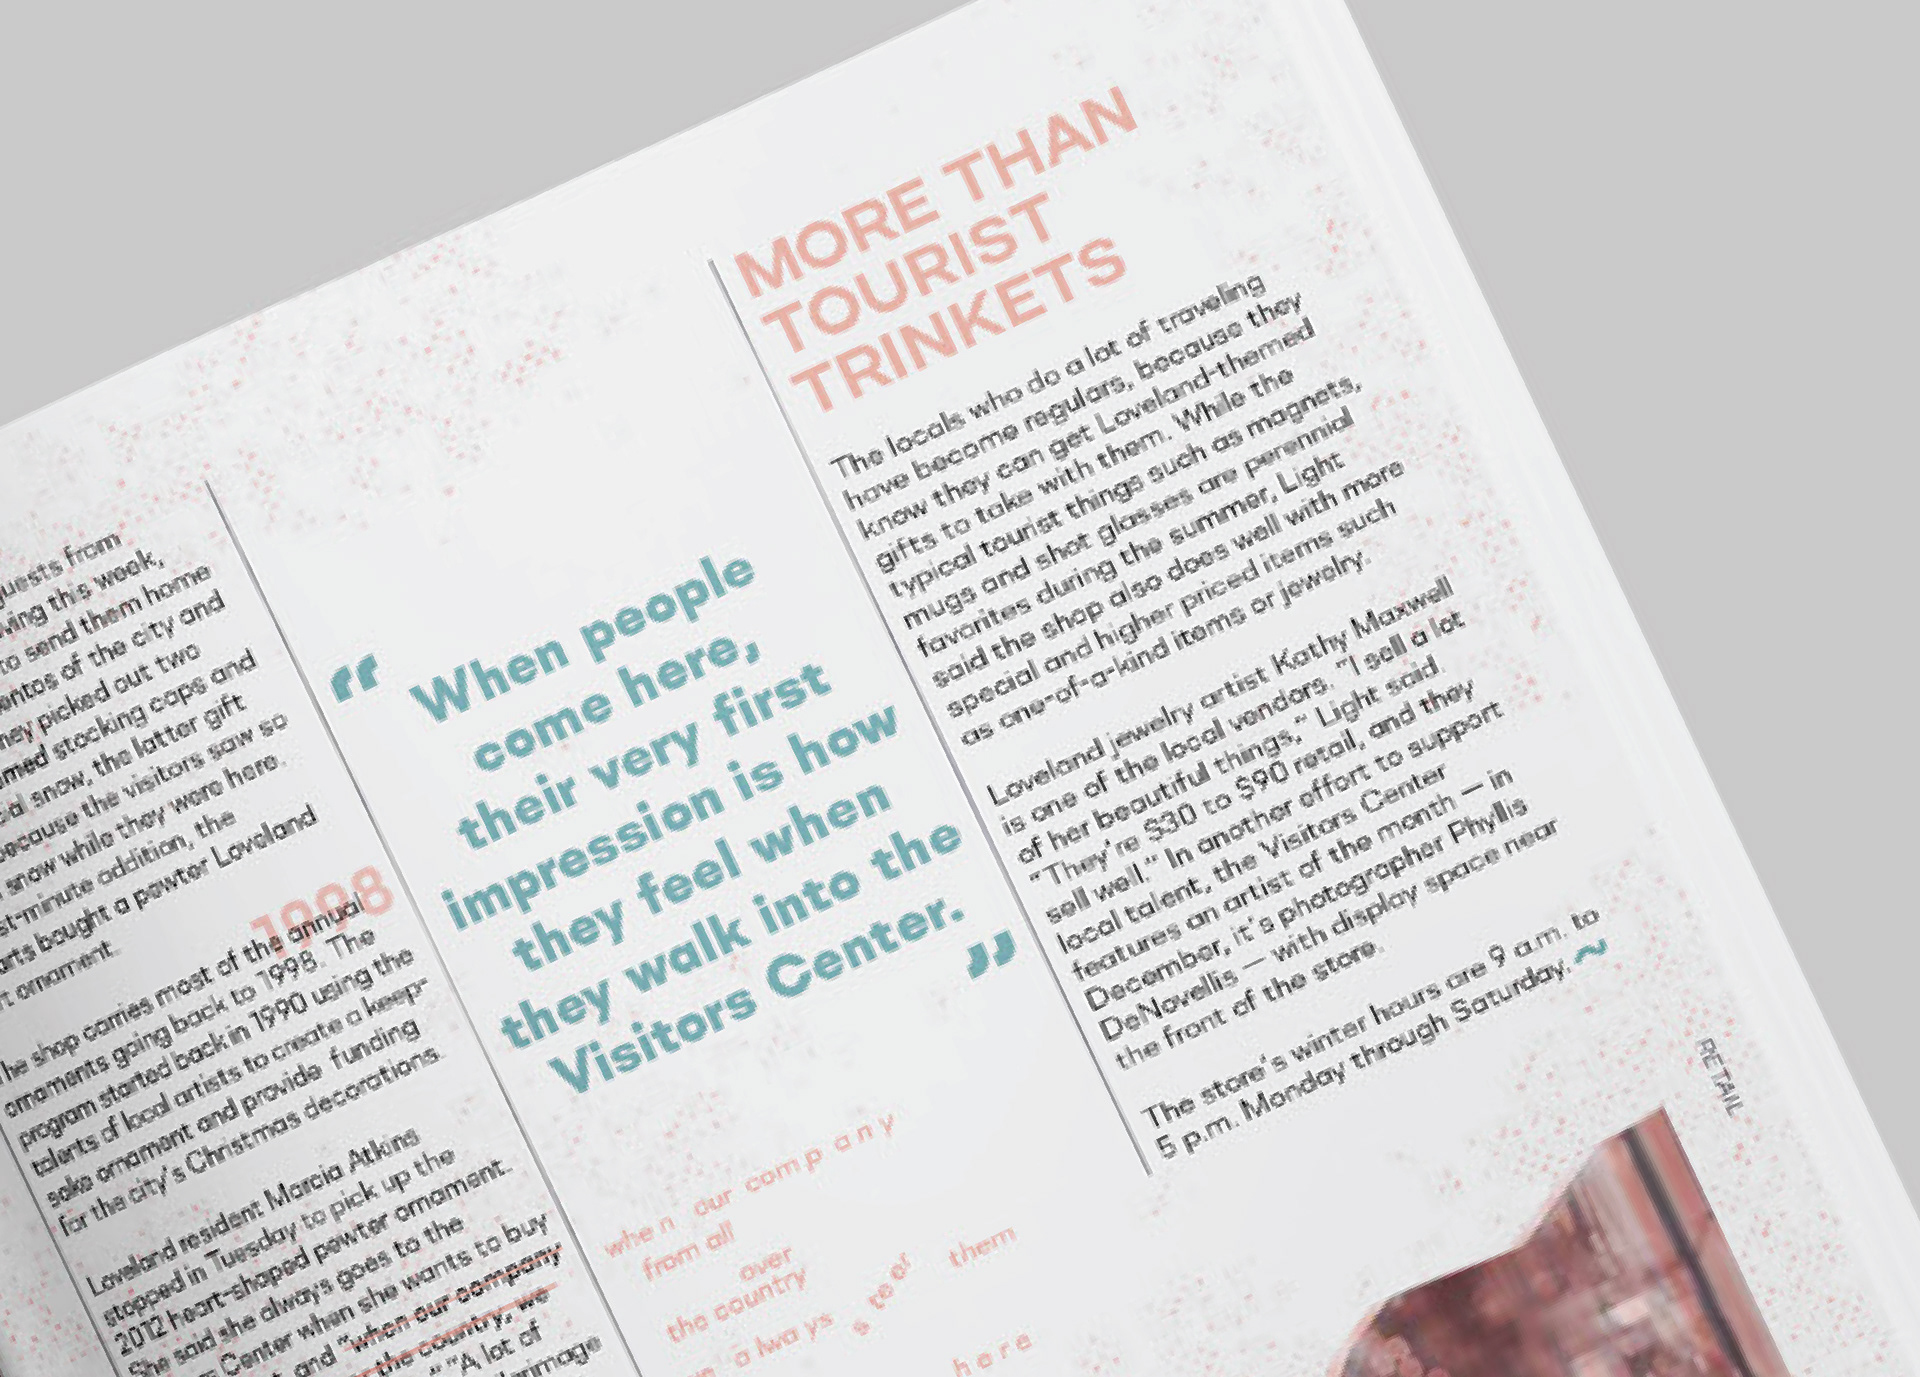 guests from
this week,
to send them home
of the city and
picked out two
stocking caps and
snow, the latter gift
because the visitors saw so
snow while they were here.
addition, the
bought a pewter Loveland
ornament.
1998
The shop carries most of the annual
ornaments going back to 1998. The
program started back in 1990 using the
talents of local artists to create a keep-
sake ornament and provide funding
for the city's Christmas decorations.
Loveland resident Marcia Atkins
stopped in Tuesday to pick up the
2012 heart-shaped pewter ornament.
She said she always goes to the
Center when she wants to buy
and "when our company
the country, we
" "A lot of
“ When people
come here,
their very first
impression is how
they feel when
they walk into the
Visitors Center. ”
when our company
from all
over
the country
always
them
here
MORE THAN
TOURIST
TRINKETS
The locals who do a lot of traveling
have become regulars, because they
know they can get Loveland-themed
gifts to take with them. While the
typical tourist things such as magnets,
mugs and shot glasses are perennial
favorites during the summer, Light
said the shop also does well with more
special and higher priced items such
as one-of-a-kind items or jewelry.
Loveland jewelry artist Kathy Maxwell
is one of the local vendors. "I sell a lot
of her beautiful things," Light said.
"They're $30 to $90 retail, and they
sell well." In another effort to support
local talent, the Visitors Center
features an artist of the month — in
December, it's photographer Phyllis
DeNovellis — with display space near
the front of the store.
The store's winter hours are 9 a.m. to
5 p.m. Monday through Saturday. ~
RETAIL